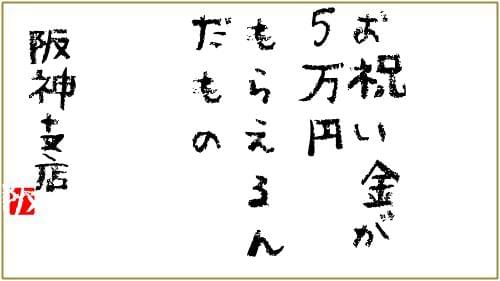 お祝い金が
5万円
もらえるん
だもの
阪神支店